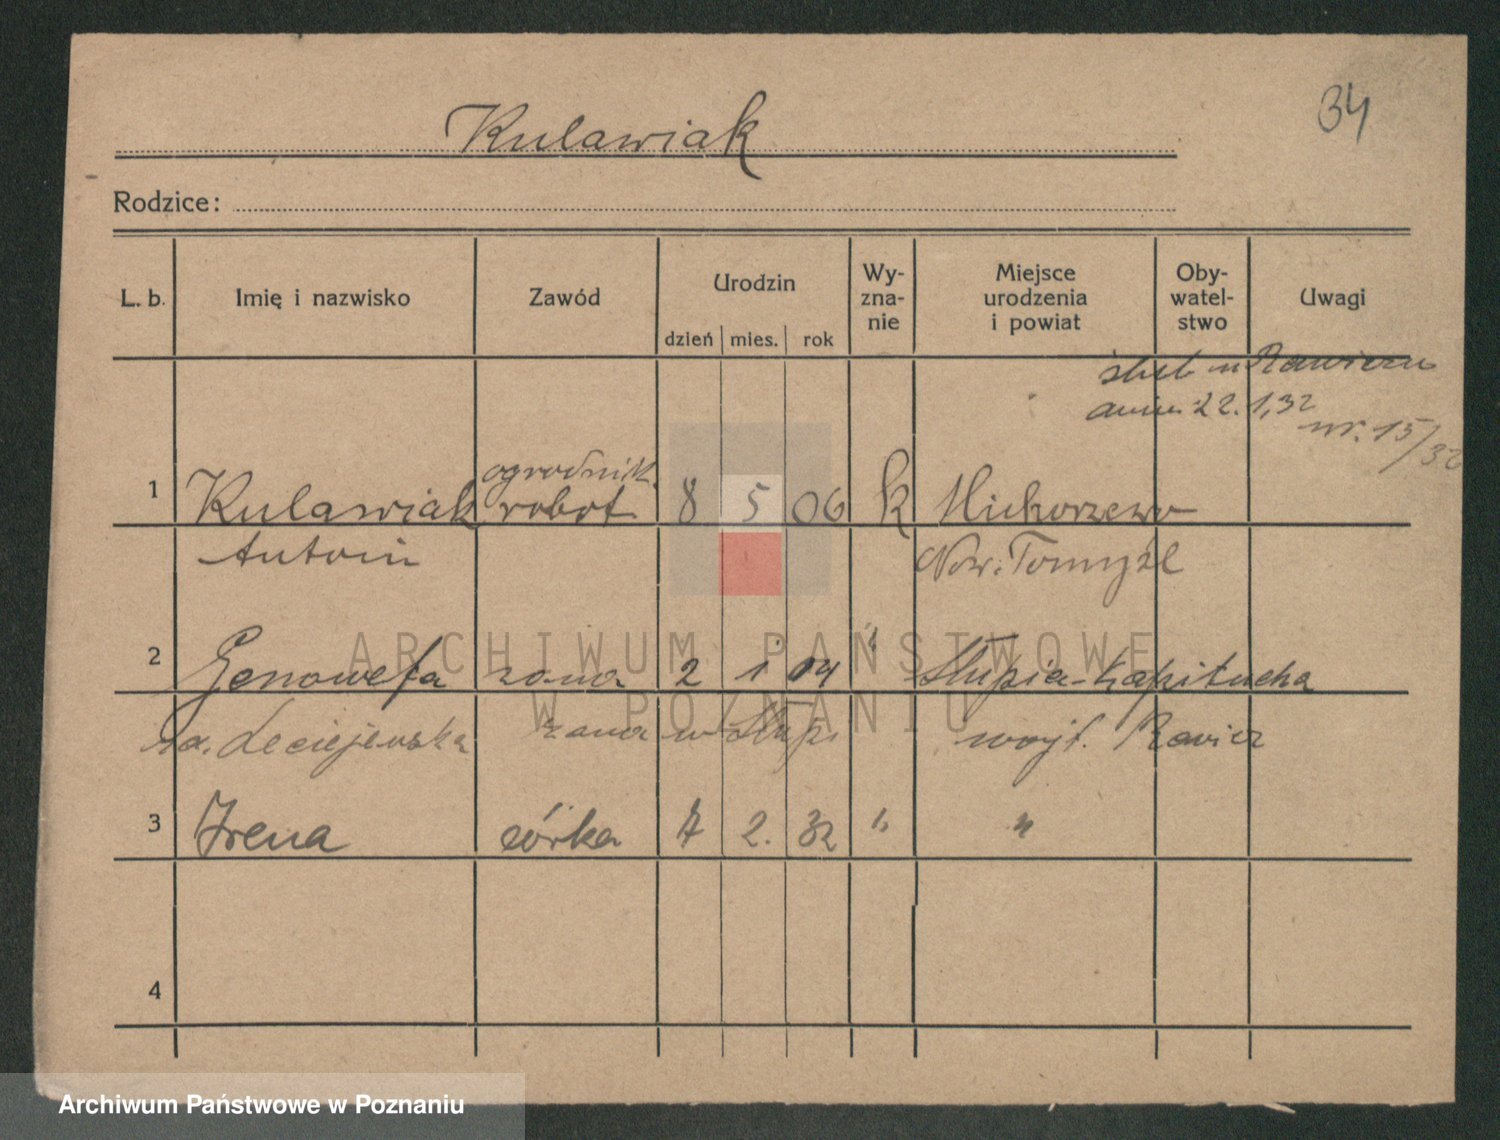 34
Kulawiak
Rodzice:
L. b. Imię i nazwisko Zawód Urodzin Wy-zna-nie Miejsce urodzenia i powiat Oby-watel-stwo Uwagi
dzień mies. rok
ślub w Rawiczu
dnia 22.1.32
nr. 15/32
ogrodnik
1 Kulawiak robot 8 5 06 k Michorzewo
Antoni Now. Tomyśl
2 Genowefa żona 2 1 04 " Słupia-Kapitulna
Leciejewska żona w Słupi Rawicz
3 Irena córka 7 2. 32 " "
4
ARCHIWUM PAŃSTWOWE
W POZNANIU
Archiwum Państwowe w Poznaniu